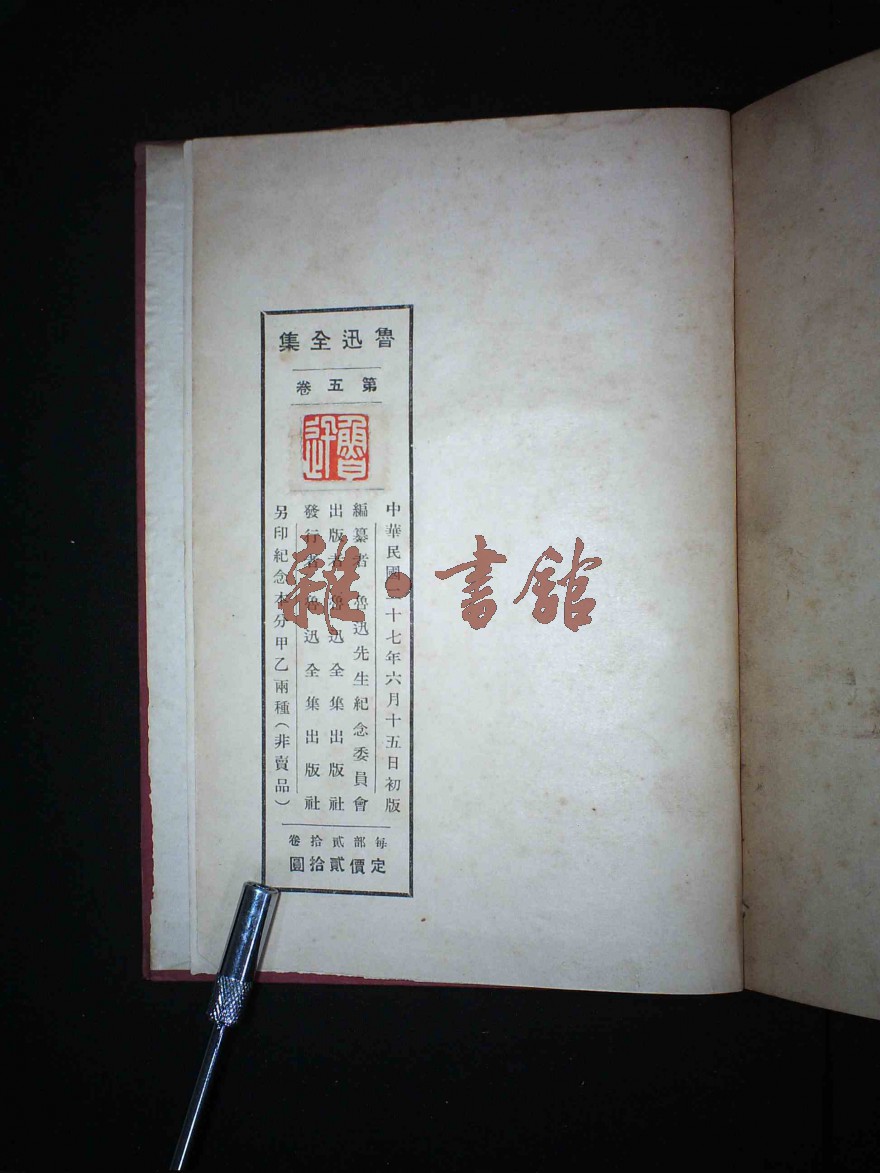 魯迅全集
第五卷
魯迅
中華民國二十七年六月十五日初版
編纂者 魯迅先生紀念委員會
出版者 魯迅全集出版社
發行者 魯迅全集出版社
另印紀念本分甲乙兩種(非賣品)
每部貳拾卷
定價貳拾圓
雜·書館